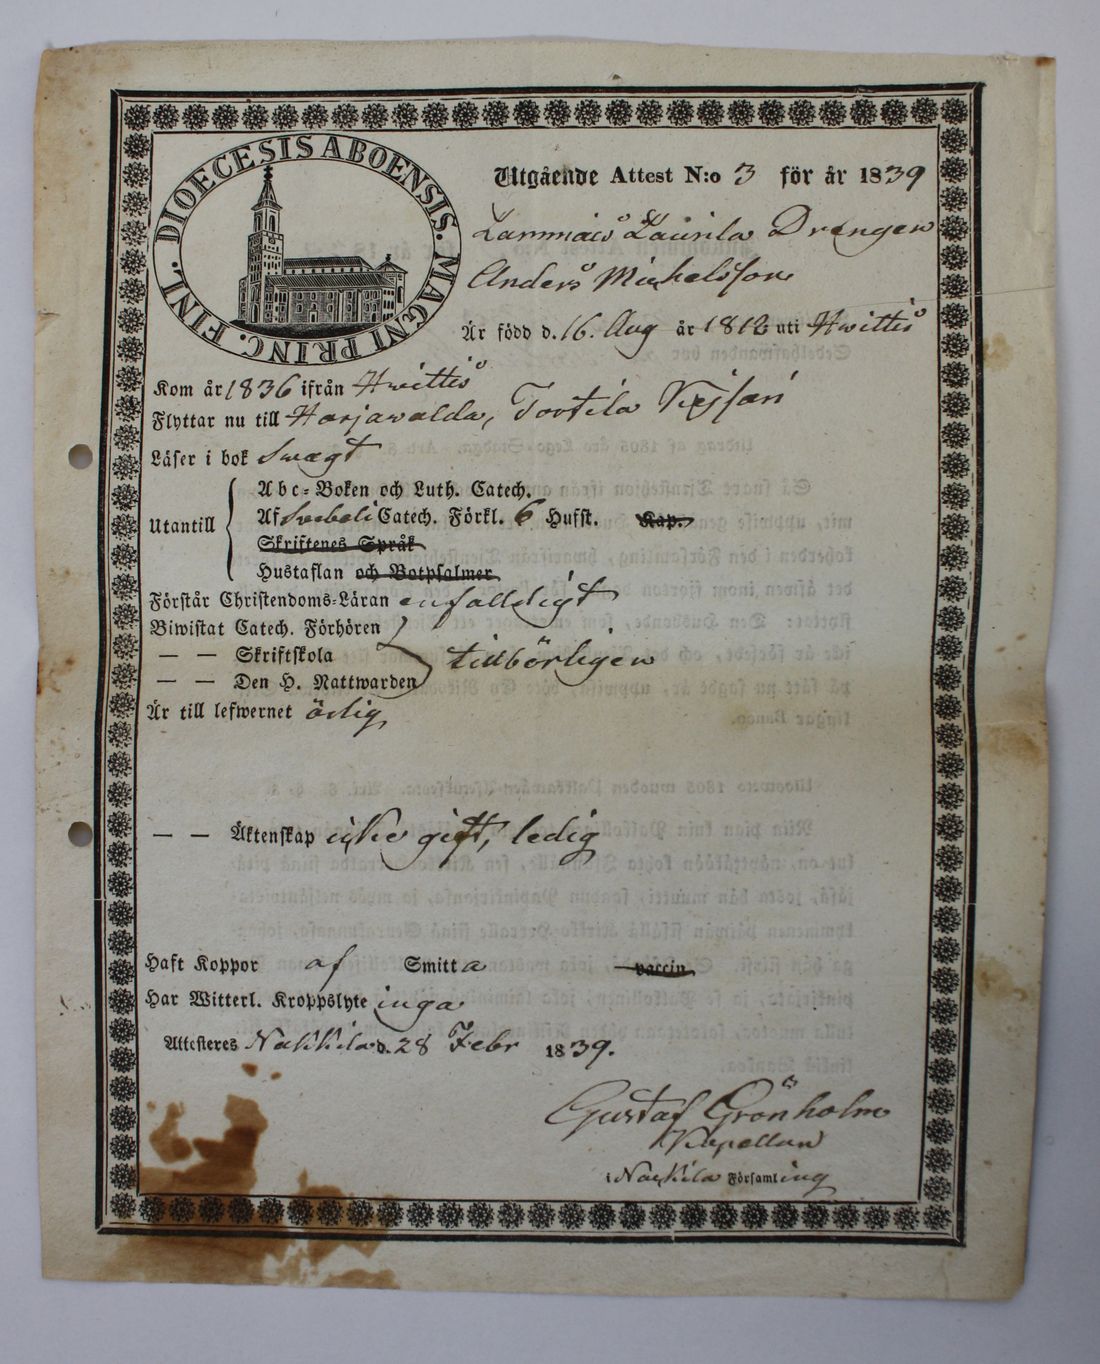 DIOECESIS ABOENSIS. MAGNI PRINC. FINL.
Utgående Attest N:o 3 för år 1839
Lammais Laurila Drengen
Anders Michelsson
Är född d. 16. Aug år 1812 uti Hwittis
Kom år 1836 ifrån Hwittis
Flyttar nu till Harjawalda, Tortila
Läser i bok Swagt
Abc-Boken och Luth. Catech.
Utantill Af Svebeli Catech. Förkl. 6 Hufst. Kap.
Skriftenes Språk
Hustaflan och Botpsalmer
Förstår Christendoms-Läran enfalldigt
Biwistat Catech. Förhören
— — Skriftskola tillbörligen
— — Den H. Nattwarden
Är till lefwernet ärlig
— — Äktenskap icke gift, ledig
Haft Koppor af Smitta vaccin
Har Witterl. Kroppslyte inga
Attesteres Nakkila d. 28 Febr 1839.
Gustaf Grönholm
Kapellan
i Nakkila Församling